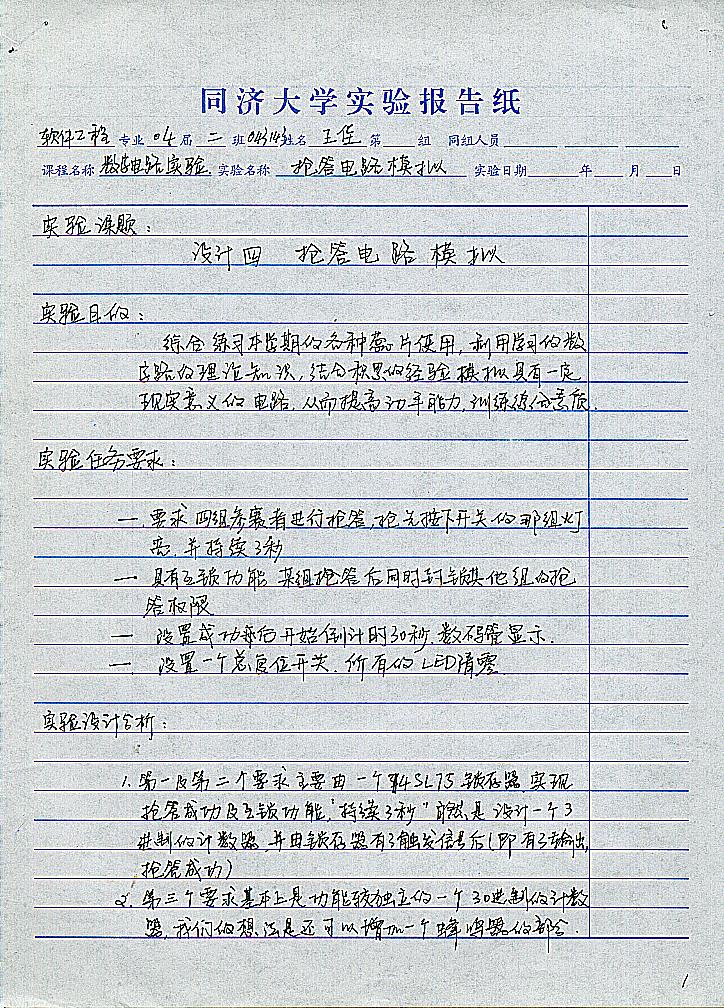 同济大学实验报告纸
软件工程 专业 04 届 二 班 043143 姓名 王佳 第 组 同组人员
课程名称 数字电路实验 实验名称 抢答电路模拟 实验日期 年 月 日
实验课题:
设计四 抢答电路模拟
实验目的:
综合练习本学期的各种芯片使用,利用学习的数
字路的理论知识,结合积累的经验模拟具有一定
现实意义的电路.从而提高动手能力,训练综合素质.
实验任务要求:
一.要求四组参赛者进行抢答,抢先按下开关的那组灯
亮,并持续3秒
一 具有互锁功能 某组抢答后同时封锁其他组的抢
答权限
一 设置成功抢后开始倒计时30秒.数码管显示.
一. 设置一个总复位开关.所有的LED清零.
实验设计分析:
1. 第一及第二个要求主要由一个74SL75锁存器.实现
抢答成功及互锁功能."持续3秒"自然是设计一个3
进制的计数器.并由锁存器有了触发信号后(即有了输出,
抢答成功)
2. 第三个要求基本上是功能较独立的一个30进制的计数
器,我们的想法是还可以增加一个蜂鸣器的部分.
1